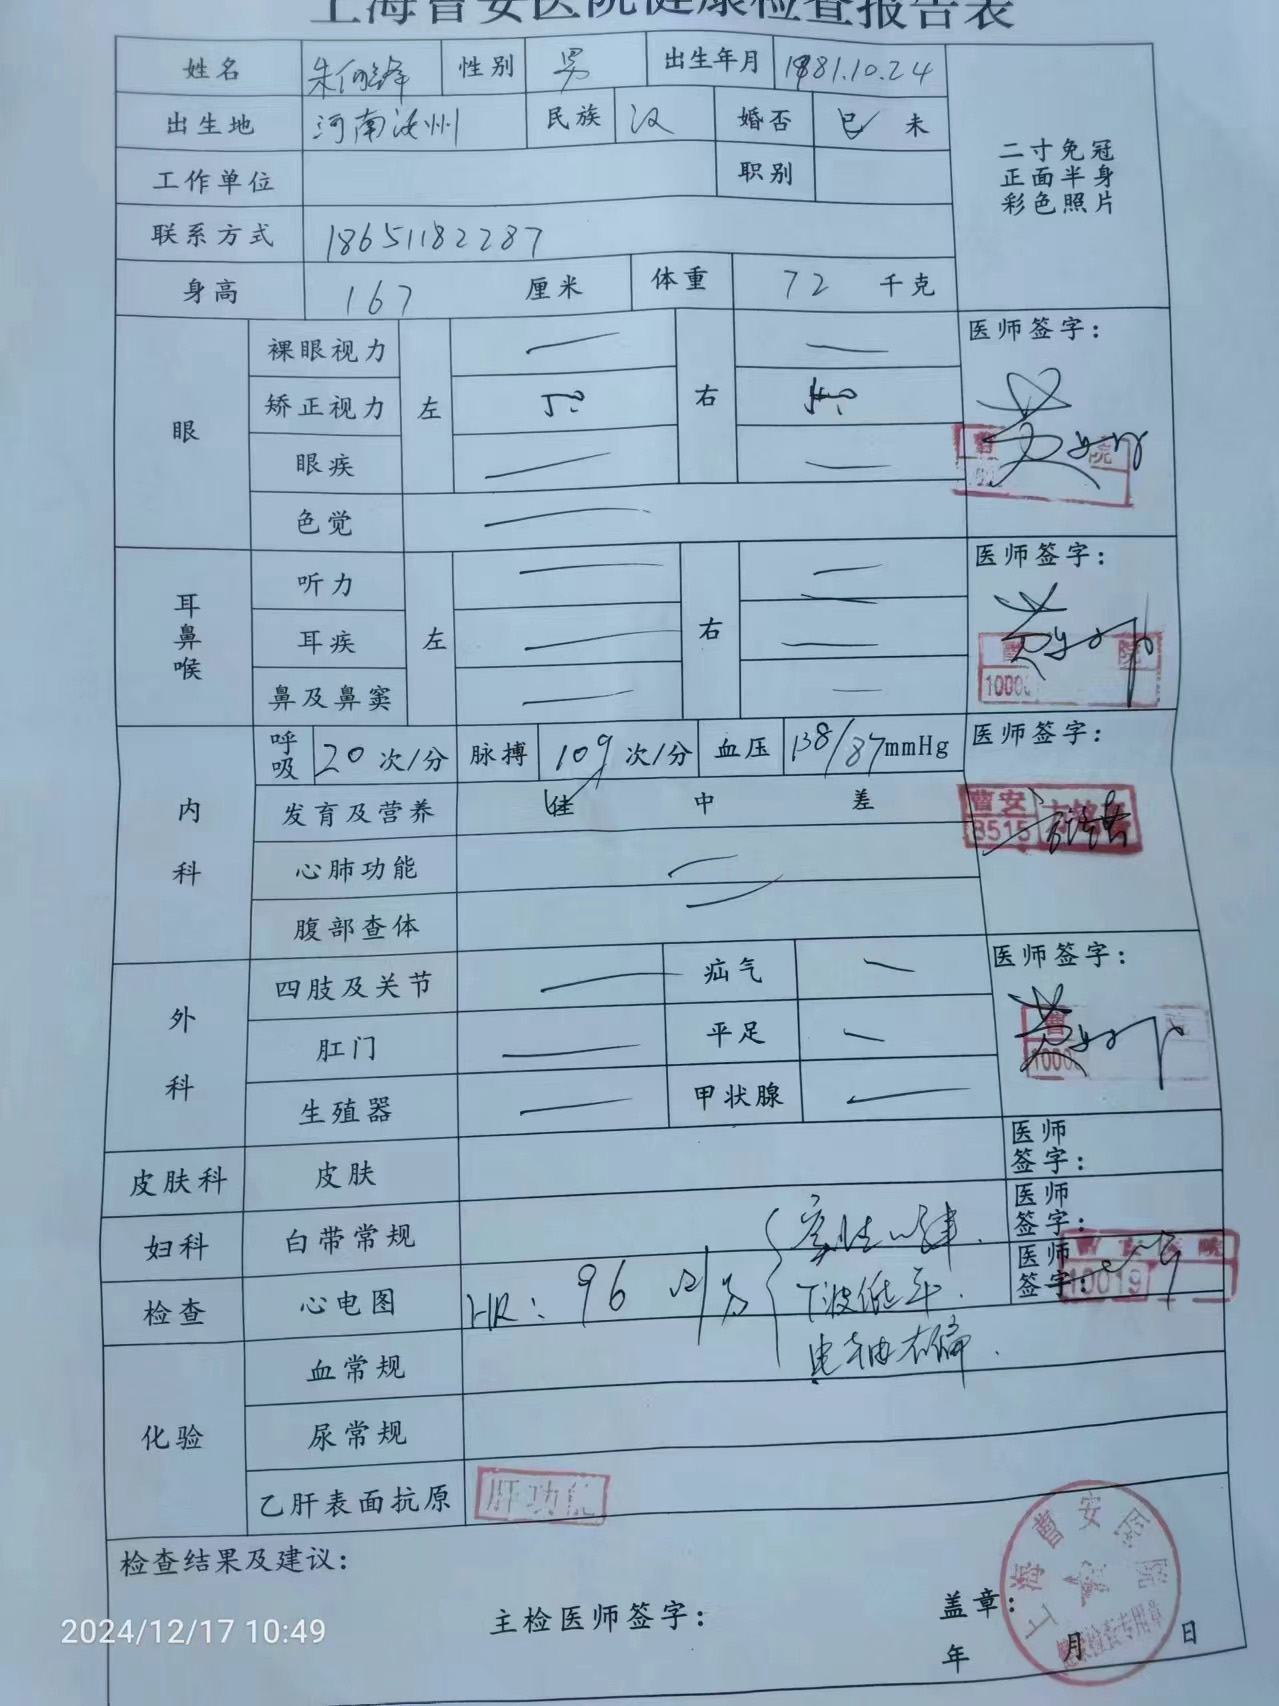 上海曹安医院健康检查报告表
姓名 朱 锋 性别 男 出生年月 1981.10.24
出生地 河南汝州 民族 汉 婚否 已 未
二寸免冠
正面半身
彩色照片
工作单位 职别
联系方式 18651182287
身高 167 厘米 体重 72 千克
眼 裸眼视力 左 右 医师签字：
矫正视力 5.0
眼疾
色觉
耳鼻喉 听力 左 右 医师签字：
耳疾
鼻及鼻窦
内科 呼吸 20 次/分 脉搏 109 次/分 血压 138/87 mmHg 医师签字：
发育及营养 佳 中 差
心肺功能
腹部查体
外科 四肢及关节 疝气 医师签字：
肛门 平足
生殖器 甲状腺
皮肤科 皮肤 医师签字：
妇科 白带常规 医师签字：
检查 心电图 HR: 96 次/分 窦性心律. 医师签字：
T波低平.
电轴右偏.
化验 血常规
尿常规
乙肝表面抗原 肝功能
检查结果及建议：
主检医师签字： 盖章：
年 月 日
上海曹安医院
健康检查专用章
2024/12/17 10:49